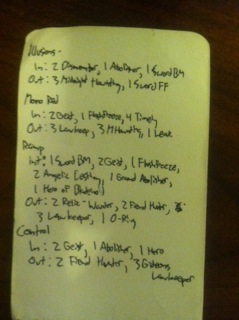 Illusions -
In: 2 Dismember, 1 Abolisher, 1 Sword BM
Out: 3 Midnight Haunting, 1 Sword FF
Mono Red
In: 2 Geist, 1 Flashfreeze, 4 Timely
Out: 3 Lawkeep, 3 M Haunting, 1 Leak
Ramp
In: 1 Sword BM, 2 Geist, 1 Flashfreeze,
2 Angelic Destiny, 1 Grand Abolisher,
1 Hero of Bladehold
Out: 2 Relic-Warder, 2 Fiend Hunter,
3 Lawkeeper, 1 O-Ring
Control
In: 2 Geist, 1 Abolisher, 1 Hero
Out: 2 Fiend Hunter, 3 Gideons
Lawkeeper